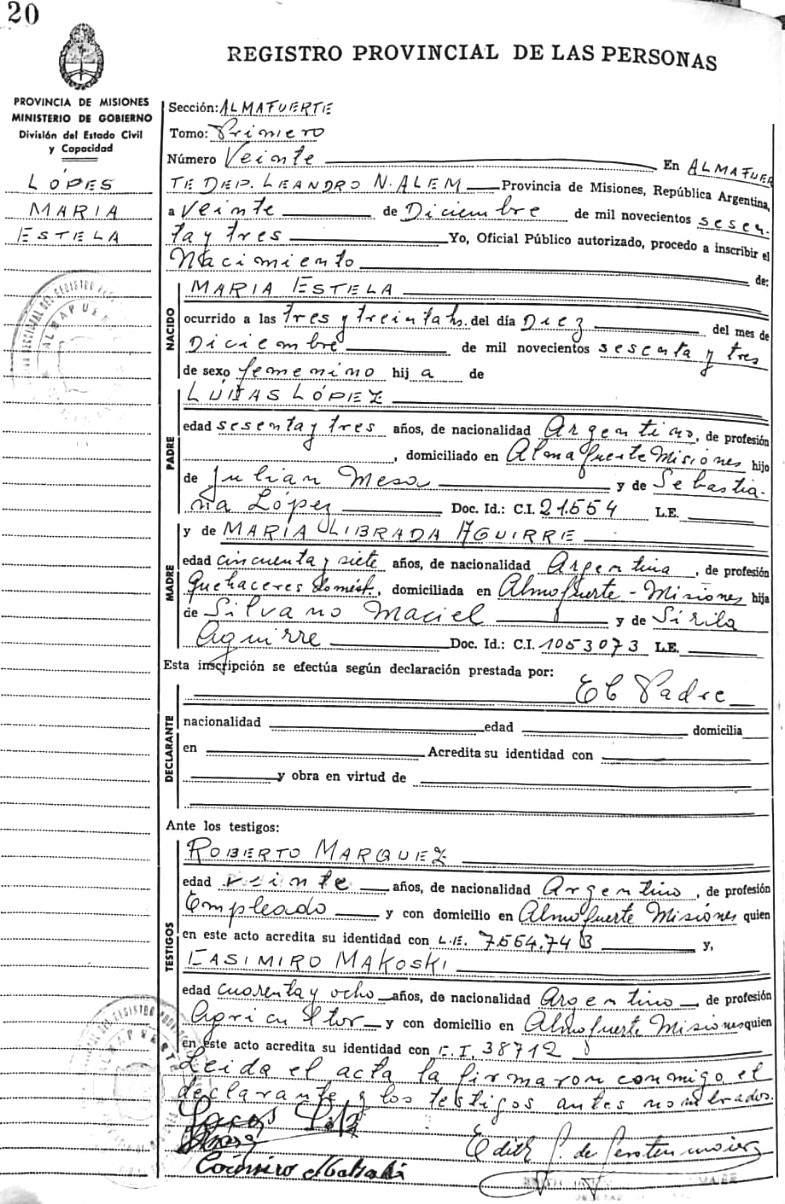 20
REGISTRO PROVINCIAL DE LAS PERSONAS
PROVINCIA DE MISIONES
MINISTERIO DE GOBIERNO
División del Estado Civil
y Capacidad
LÓPES
MARIA
ESTELA
Sección: ALMAFUERTE
Tomo: Primero
Número Veinte En ALMAFUER
TE DEP. LEANDRO N. ALEM Provincia de Misiones, República Argentina,
a Veinte de Diciembre de mil novecientos sesen-
ta y tres Yo, Oficial Público autorizado, procedo a inscribir el
Nacimiento de:
NACIDO
MARIA ESTELA
ocurrido a las tres y treinta hs. del día Diez del mes de
Diciembre de mil novecientos sesenta y tres
de sexo femenino hij a de
PADRE
LUCAS LÓPEZ
edad sesenta y tres años, de nacionalidad Argentino, de profesión
, domiciliado en Almafuerte Misiones hijo
de Julian Mesa y de Sebastia-
na López Doc. Id.: C.I. 21554 L.E.
y de MARIA LIBRADA AGUIRRE
MADRE
edad cincuenta y siete años, de nacionalidad Argentina, de profesión
Quehaceres domést., domiciliada en Almafuerte - Misiones hija
de Silvano Maciel y de Sirila
Aguirre Doc. Id.: C.I. 1053073 L.E.
Esta inscripción se efectúa según declaración prestada por:
El Padre
DECLARANTE
nacionalidad edad domicilia
en Acredita su identidad con
y obra en virtud de
Ante los testigos:
TESTIGOS
ROBERTO MARQUEZ
edad veinte años, de nacionalidad Argentino, de profesión
Empleado y con domicilio en Almafuerte Misiones quien
en este acto acredita su identidad con L.E. 7.564.743 y,
CASIMIRO MAKOSKI
edad cuarenta y ocho años, de nacionalidad Argentino de profesión
Agricultor y con domicilio en Almafuerte Misiones quien
en este acto acredita su identidad con C.I. 38712
Leida el acta la firmaron conmigo el
declarante y los testigos antes nombrados.